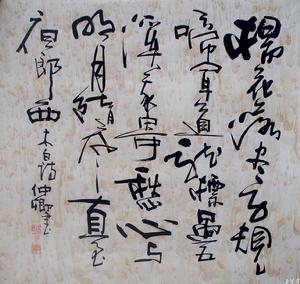 楊花落尽子規
啼聞道龍標過五
溪我寄愁心与
明月随風直到
夜郎西 李白詩